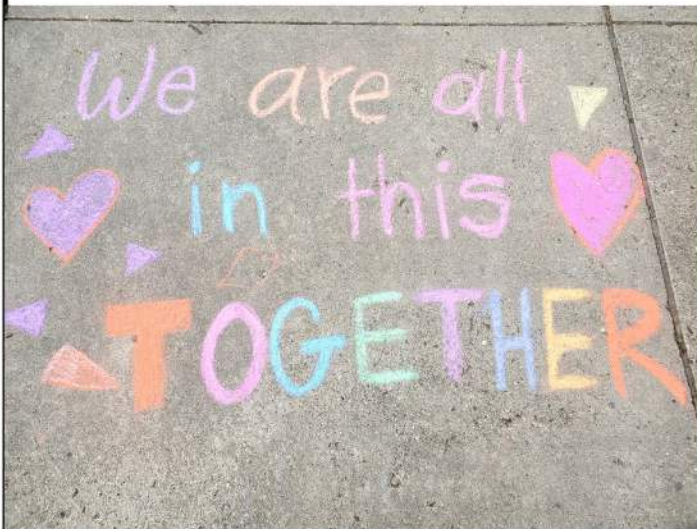 We are all
in this
TOGETHER